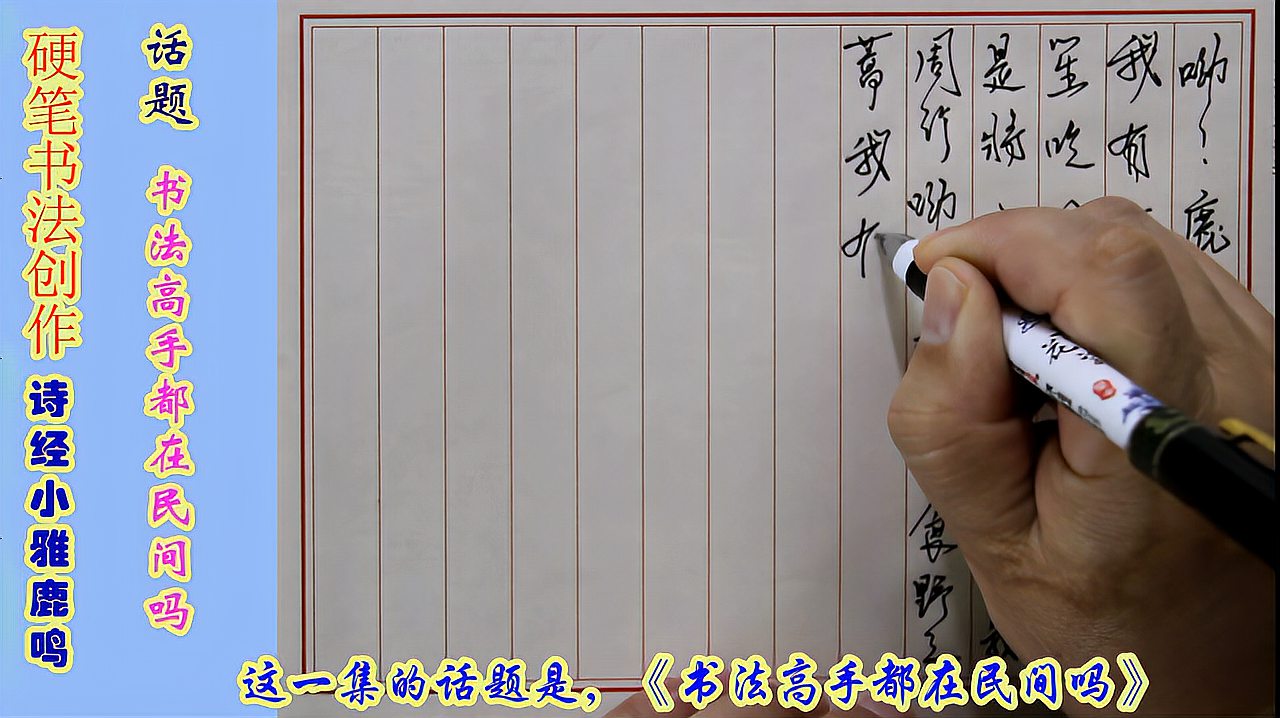 硬笔书法创作 诗经小雅鹿鸣
话题 书法高手都在民间吗
呦〻鹿
我有
笙吹
是将
周行呦 食野之
蒿我
这一集的话题是，《书法高手都在民间吗》